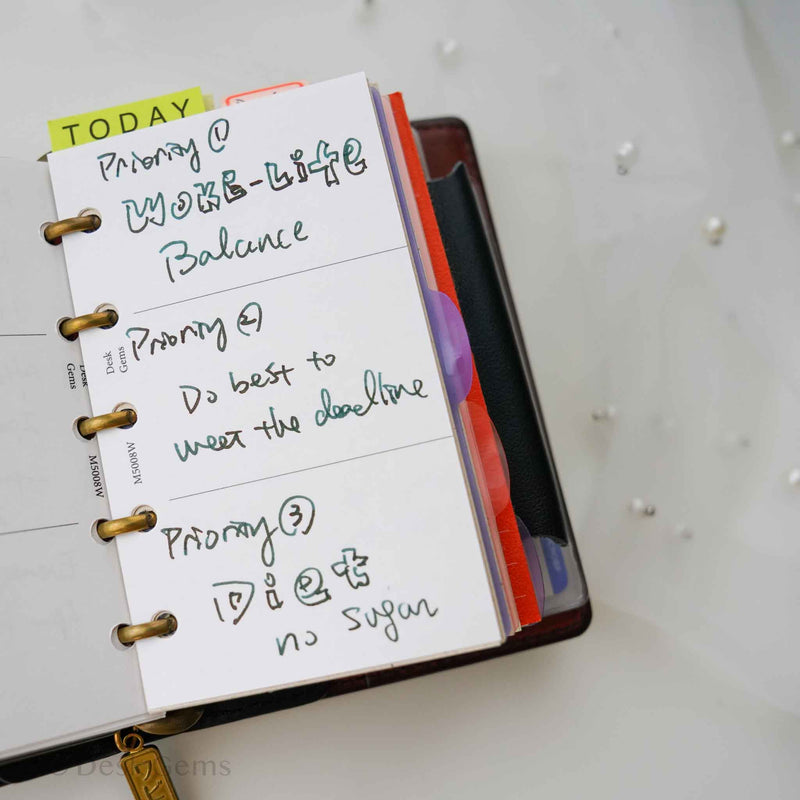 TODAY
Priority ①
WORK-Life
Balance
Priority ②
Do best to
meet the deadline
Priority ③
Diet
no sugar
Desk
Gems
M5008W
Desk
Gems
M5008W
© Desk Gems